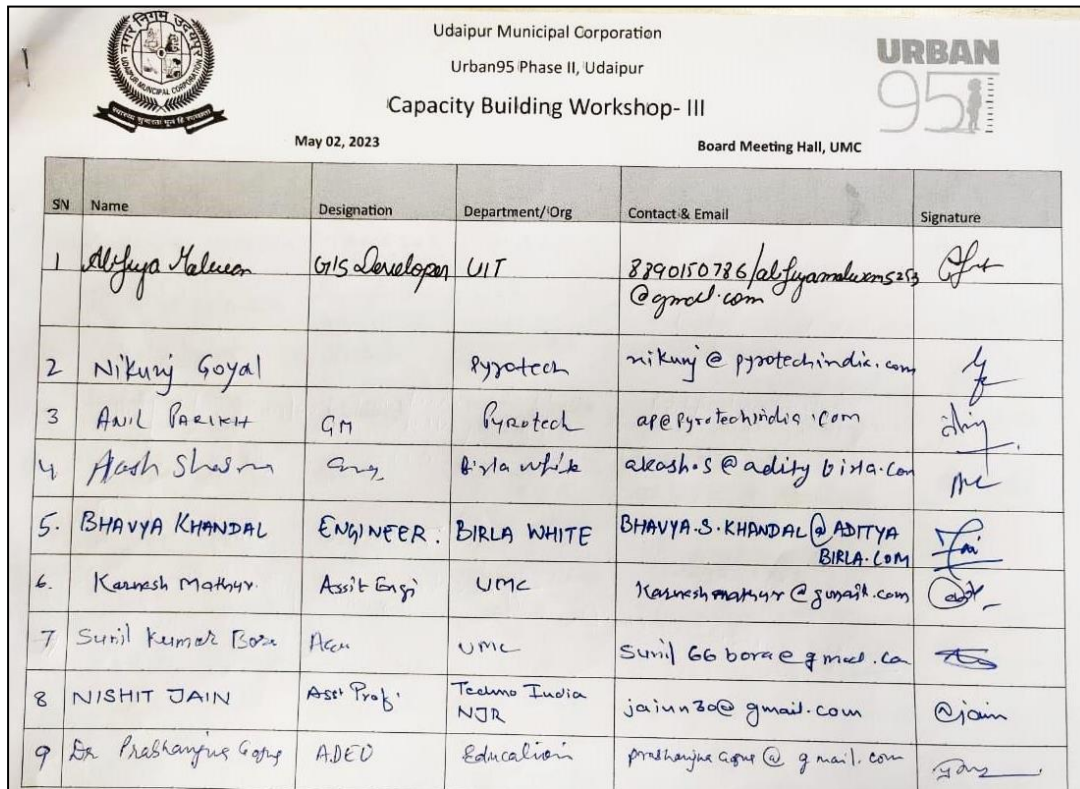 नगर निगम उदयपुर
UDAIPUR MUNICIPAL CORPORATION
Udaipur Municipal Corporation
Urban95 Phase II, Udaipur
Capacity Building Workshop- III
URBAN
95
May 02, 2023 Board Meeting Hall, UMC
SN Name Designation Department/Org Contact & Email Signature
1 GIS Developer UIT 8890150786/
@gmail.com
2 Nikunj Goyal Pyrotech nikunj@pyrotechindia.com
3 ANIL PARIKH GM Pyrotech ap@pyrotechindia.com
4 Sharma Birla White akash.s@adity birla.com
5. BHAVYA KHANDAL ENGINEER. BIRLA WHITE BHAVYA.S.KHANDAL@ADITYA
BIRLA.COM
6. Karnesh Mathur. Assit Engi UMC Karneshmathur@gmail.com
7 Sunil Kumar Bora UMC Sunil66bora@gmail.com
8 NISHIT JAIN Asst Prof. Techno India
NJR jainn30@gmail.com @jain
9 Dr A.DEO Education @gmail.com